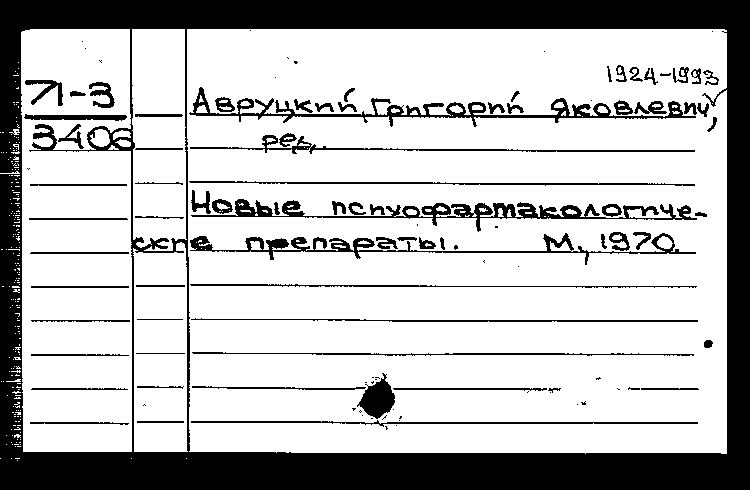 1924-1993
71-3
3406
Авруцкий, Григорий Яковлевич,
ред.
Новые психофармакологиче-
ские препараты. М., 1970.